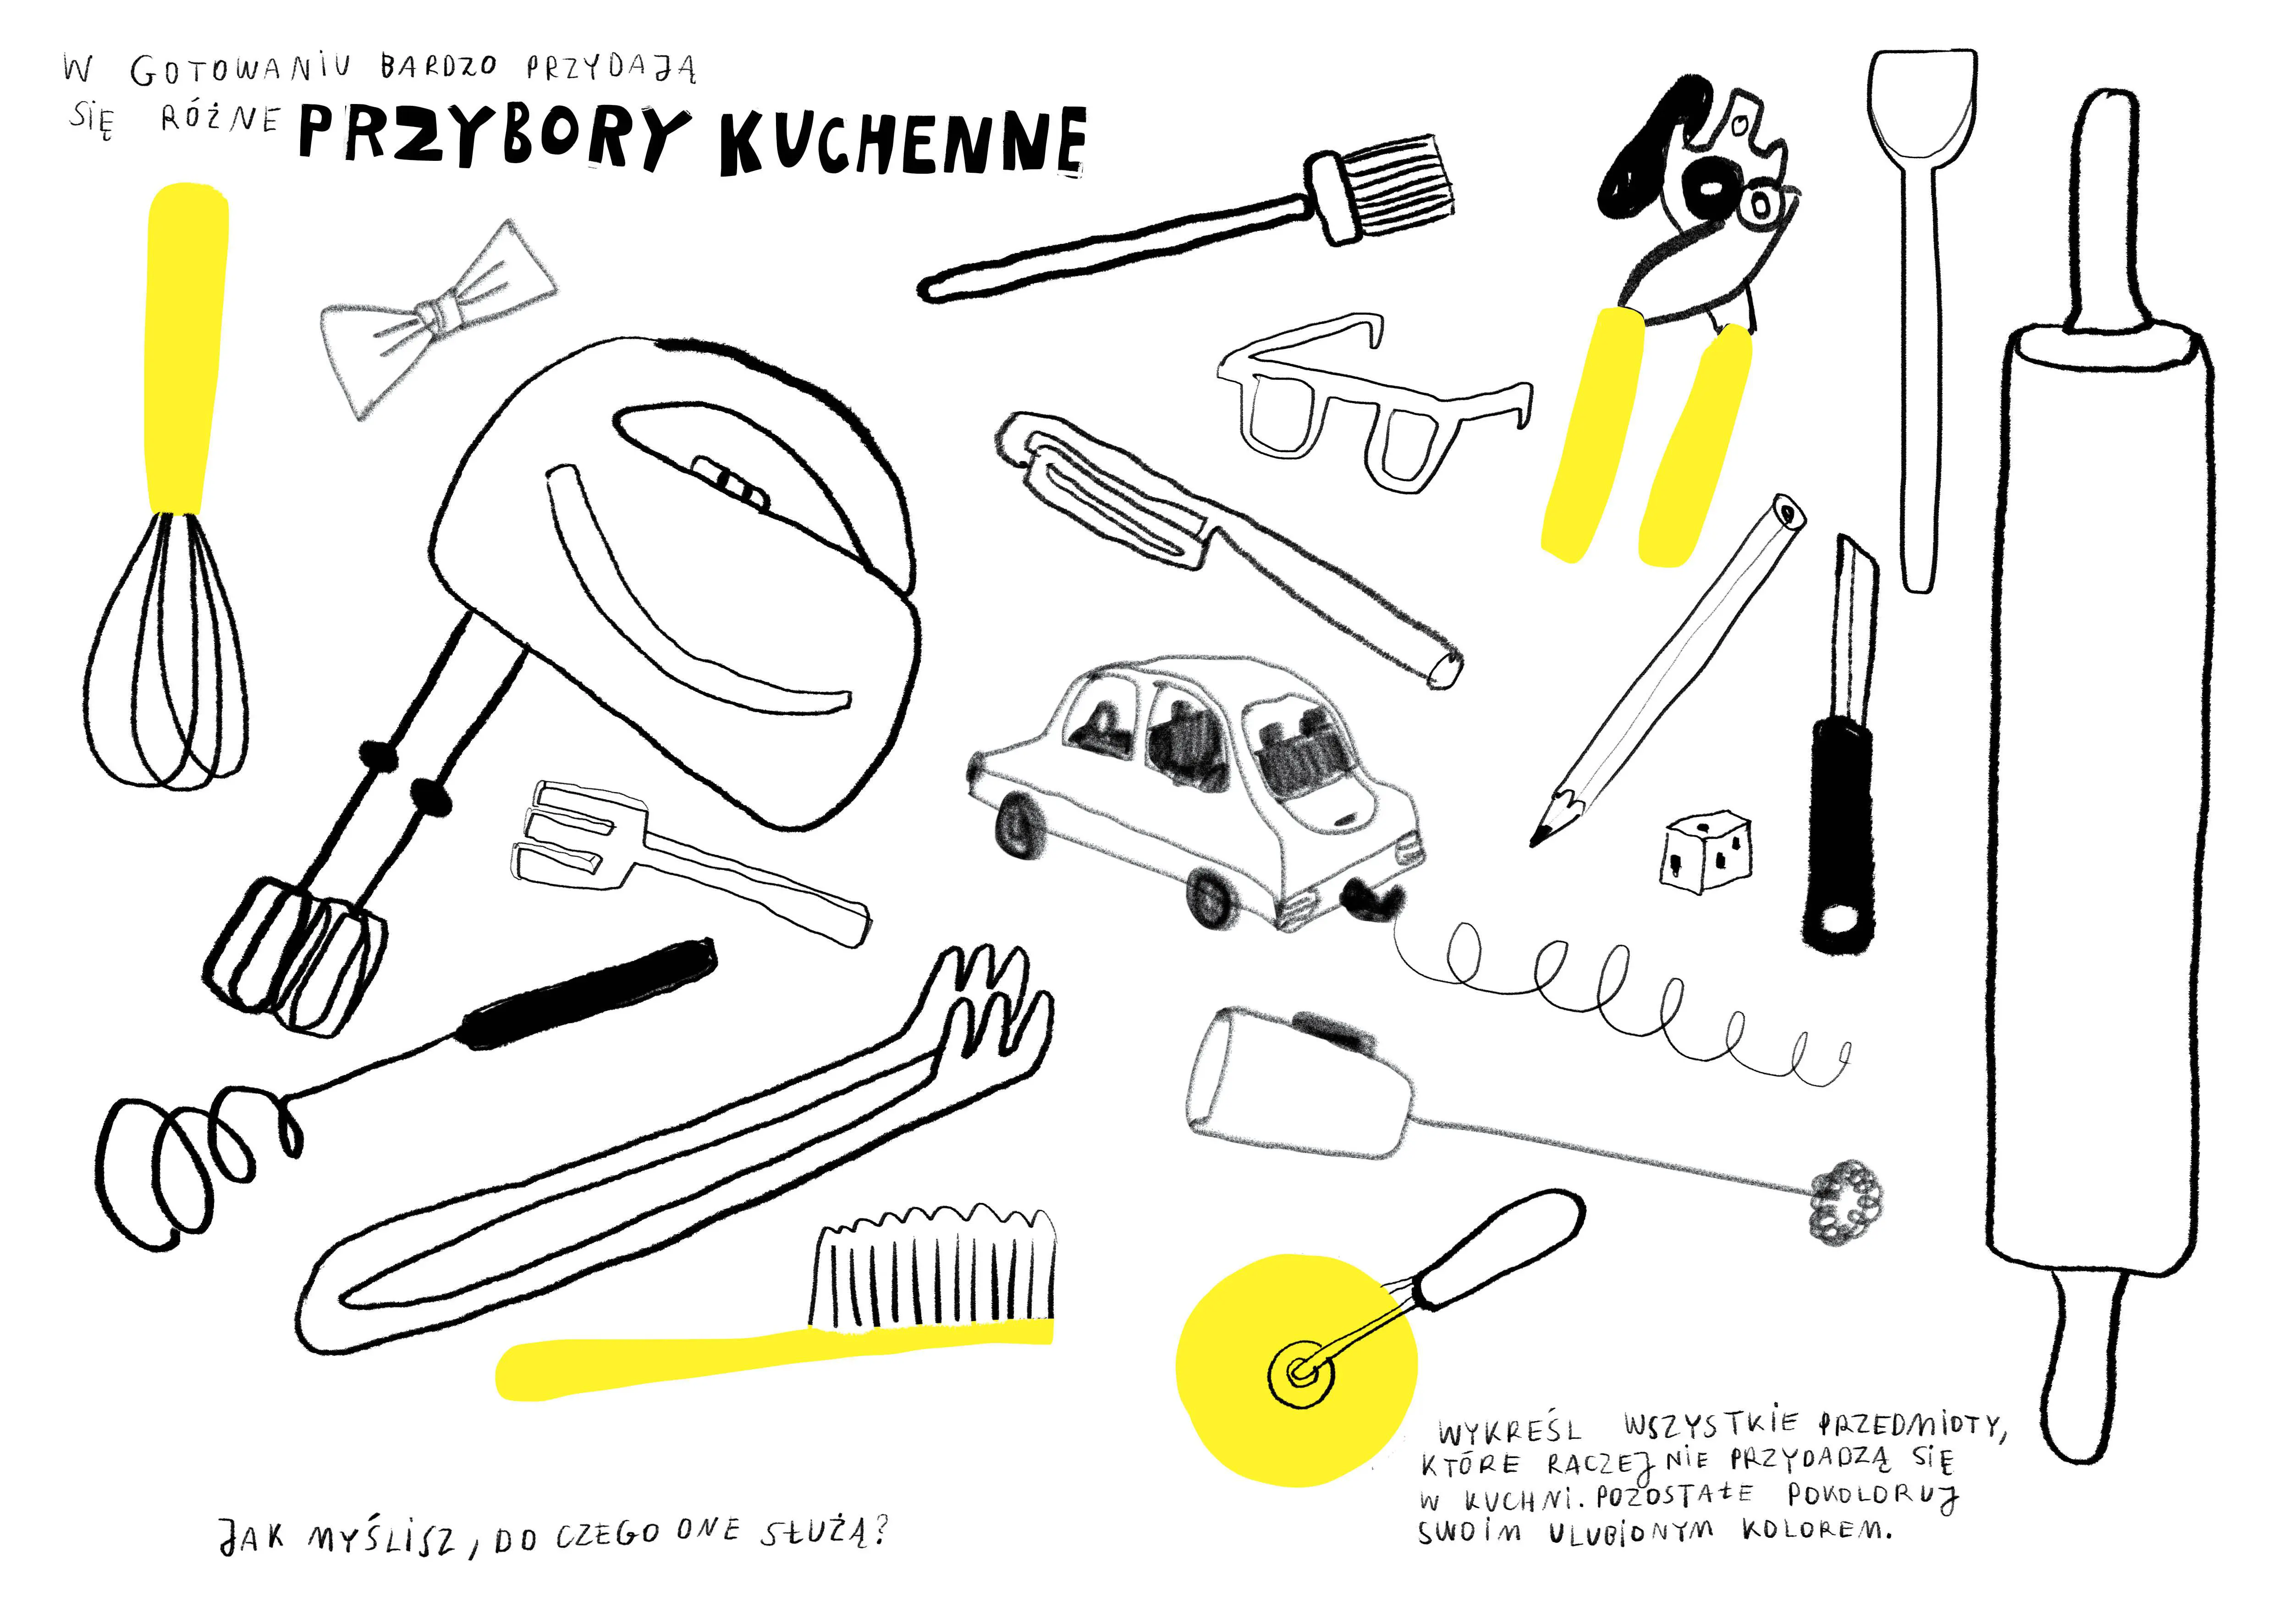 W GOTOWANIU BARDZO PRZYDAJĄ
SIĘ RÓŻNE PRZYBORY KUCHENNE
WYKREŚL WSZYSTKIE PRZEDMIOTY,
KTÓRE RACZEJ NIE PRZYDADZĄ SIĘ
W KUCHNI. POZOSTAŁE POKOLORUJ
SWOIM ULUBIONYM KOLOREM.
JAK MYŚLISZ, DO CZEGO ONE SŁUŻĄ?